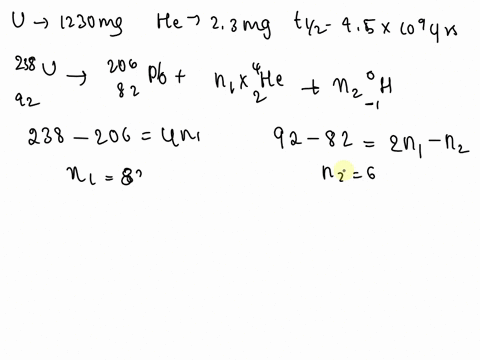 U → 1230mg He → 2.3mg t1/2 - 4.5 x 10^9 yrs
²³⁸₉₂U → ²⁰⁶₈₂Pb + n₁ x ⁴₂He + n₂ ⁰₋₁H
238 - 206 = 4n₁ 92 - 82 = 2n₁ - n₂
n₁ = 8 n₂ = 6